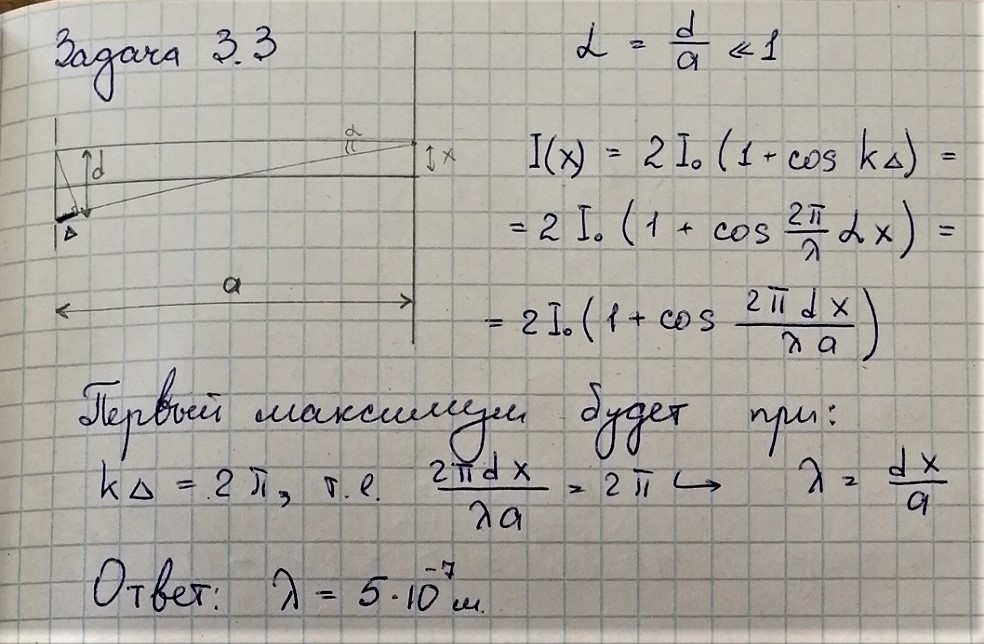 Задача 3.3
α = d/a ≪ 1
α
d
x
Δ
a
I(x) = 2I₀ (1 + cos kΔ) =
= 2I₀ (1 + cos 2π/λ αx) =
= 2I₀ (1 + cos 2πdx/λa)
Первый максимум будет при:
kΔ = 2π, т.е. 2πdx/λa = 2π ↪ λ = dx/a
Ответ: λ = 5·10⁻⁷ м.